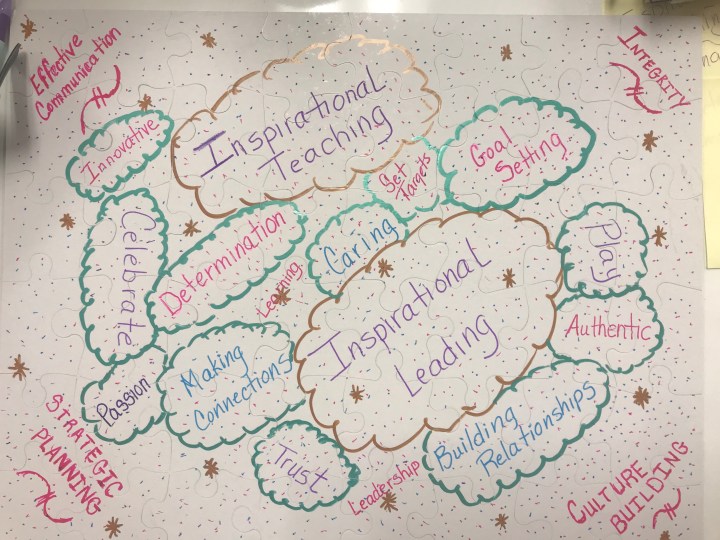 Effective
Communication
INTEGRITY
Innovative
Inspirational
Teaching
Set
Targets
Goal
Setting
Celebrate
Determination
Learning
Caring
Play
Inspirational
Leading
Authentic
Passion
Making
Connections
Building
Relationships
Trust
Leadership
STRATEGIC
PLANNING
CULTURE
BUILDING